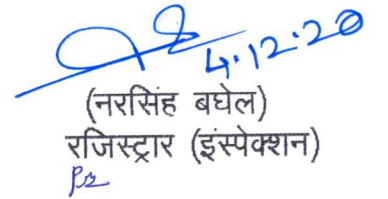 4.12.20
(नरसिंह बघेल)
रजिस्ट्रार (इंस्पेक्शन)